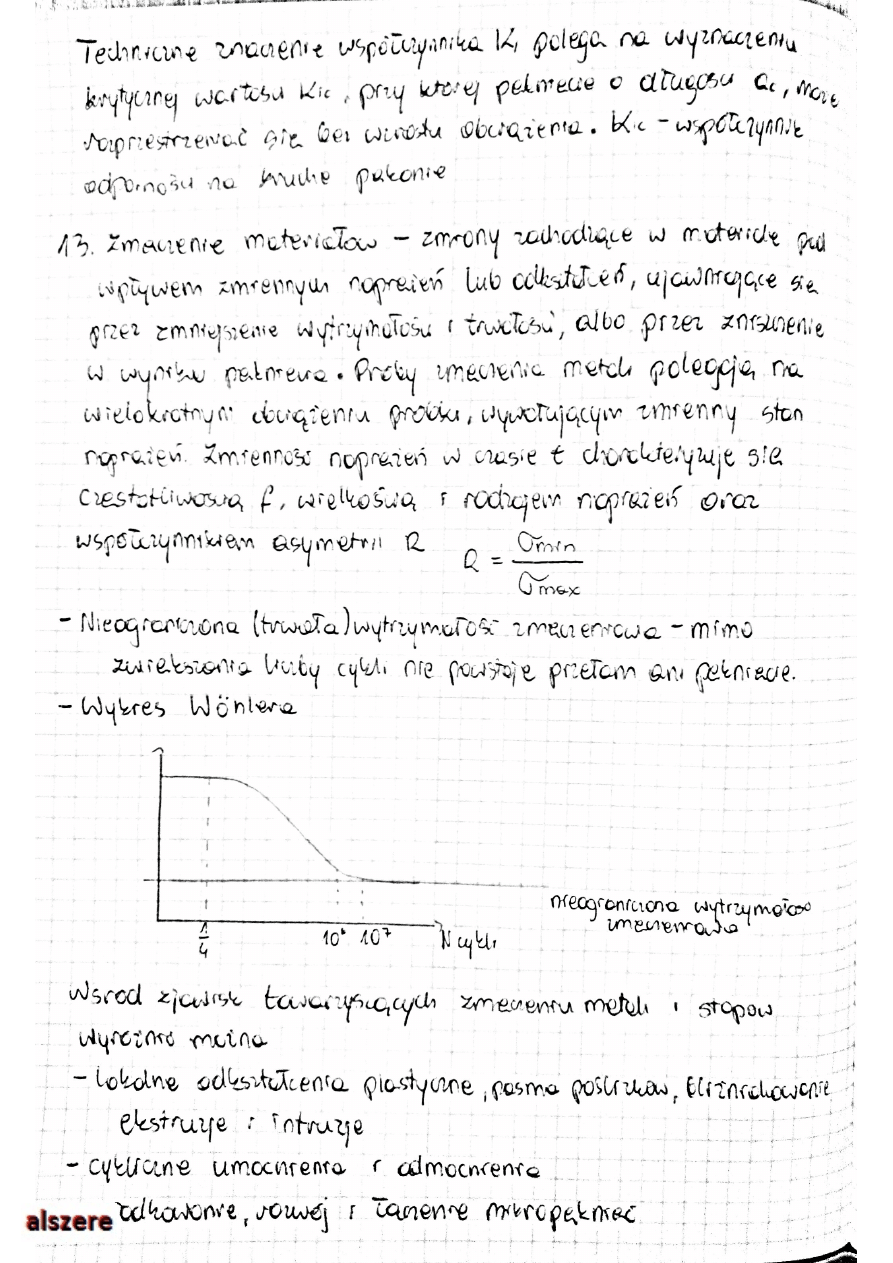 Techniczne znaczenie współczynnika K, polega na wyznaczeniu
krytycznej wartości KIc, przy której pęknięcie o długości ac, może
rozprzestrzeniać się bez wzrostu obciążenia. KIc - współczynnik
odporności na kruche pękanie
13. Zmęczenie materiałów - zmiany zachodzące w materiale pod
wpływem zmiennych naprężeń lub odkształceń, ujawniające się
przez zmniejszenie wytrzymałości i trwałości, albo przez zniszczenie
w wyniku pęknięcia. Próby zmęczenia metali polegają na
wielokrotnym obciążeniu próbki, wywołującym zmienny stan
naprężeń. Zmienność naprężeń w czasie t charakteryzuje się
częstotliwością f, wielkością i rodzajem naprężeń oraz
współczynnikiem asymetrii R R = σmin / σmax
- Nieograniczona (trwała) wytrzymałość zmęczeniowa - mimo
zwiększania liczby cykli nie powstaje przełam ani pęknięcie.
- Wykres Wöhlera
nieograniczona wytrzymałość
zmęczeniowa
1/4 10⁶ 10⁷ N cykli
Wśród zjawisk towarzyszących zmęczeniu metali i stopów
wyróżnić można
- lokalne odkształcenia plastyczne, pasma poślizgów, bliźniakowanie
ekstruzje i intruzje
- cykliczne umocnienia i odmocnienia
zarodkowanie, rozwój i łączenie mikropęknięć
alszere